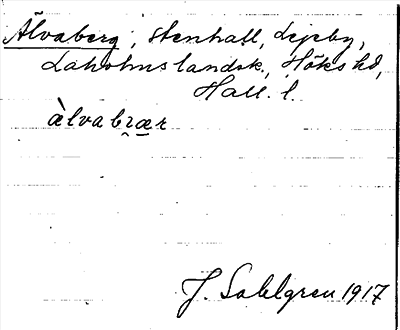 Älvaberg, stenhall, Lejeby,
Laholms landsk., Höks hd,
Hall. l.
àlvabræ̱r
J. Sahlgren 1917